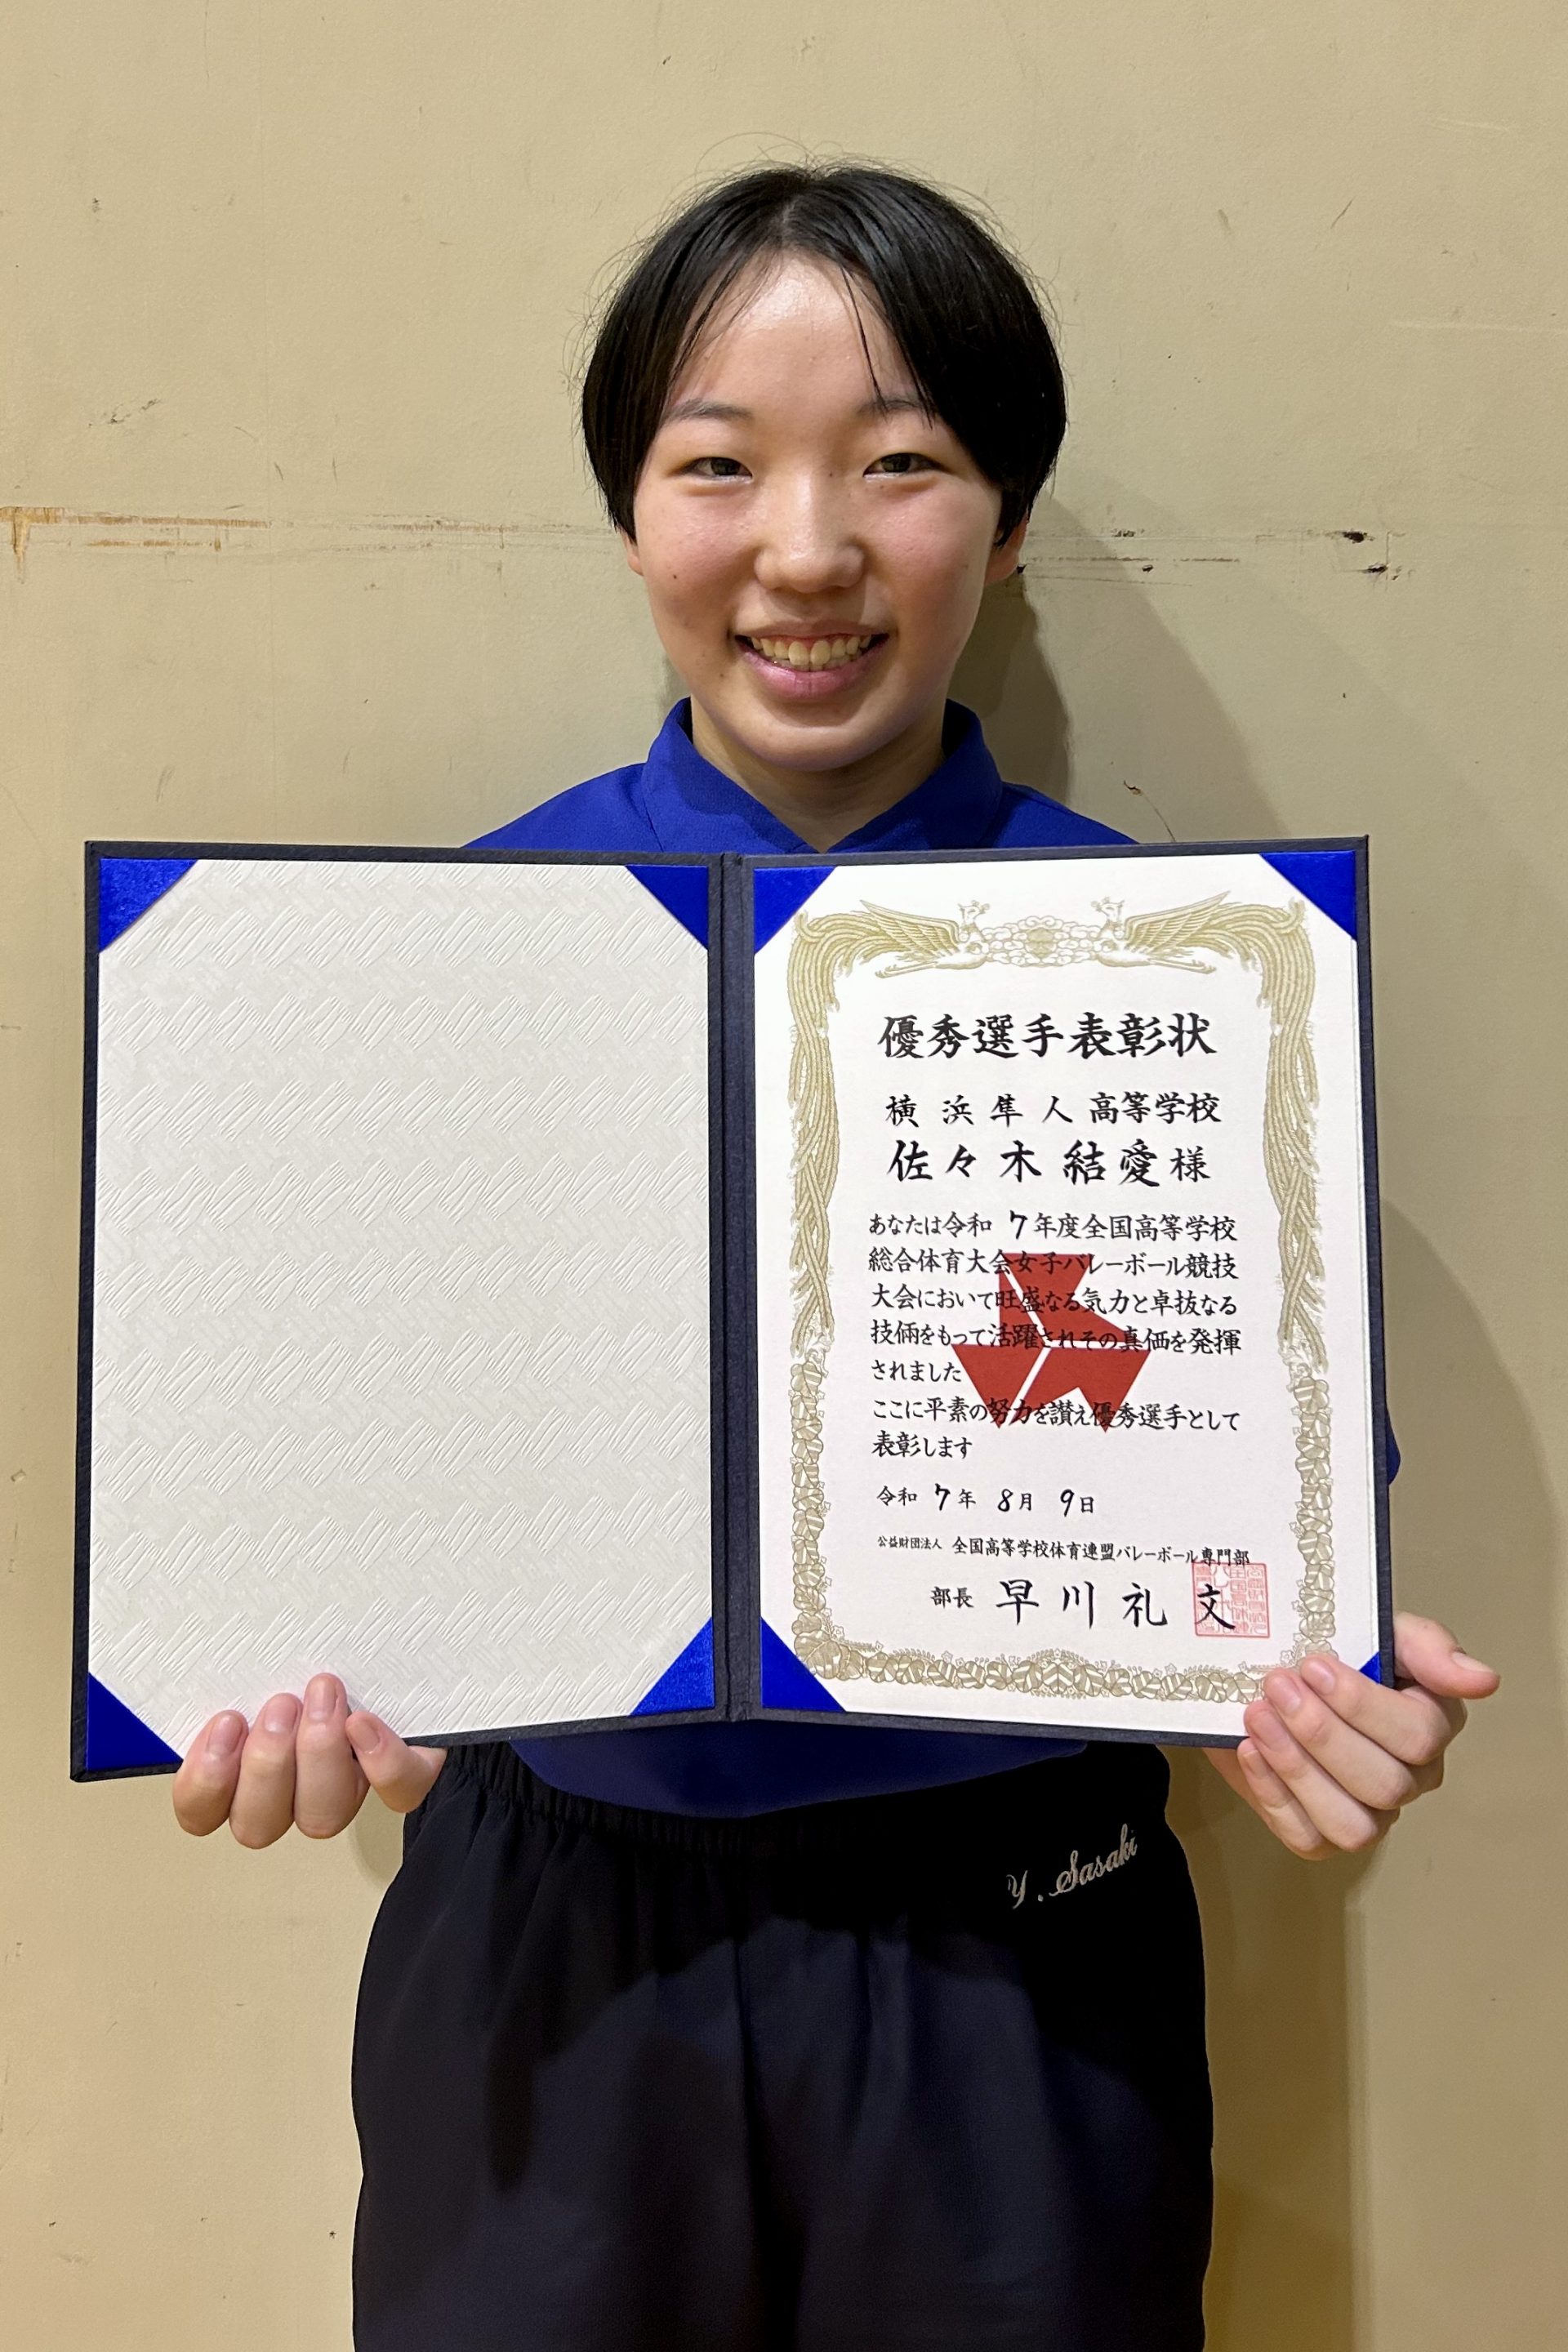 優秀選手表彰状
横浜隼人高等学校
佐々木結愛様
あなたは令和7年度全国高等学校
総合体育大会女子バレーボール競技
大会において旺盛なる気力と卓抜なる
技倆をもって活躍されその真価を発揮
されました
ここに平素の努力を讃え優秀選手として
表彰します
令和7年8月9日
公益財団法人 全国高等学校体育連盟バレーボール専門部
部長 早川礼文
Y. Sasaki